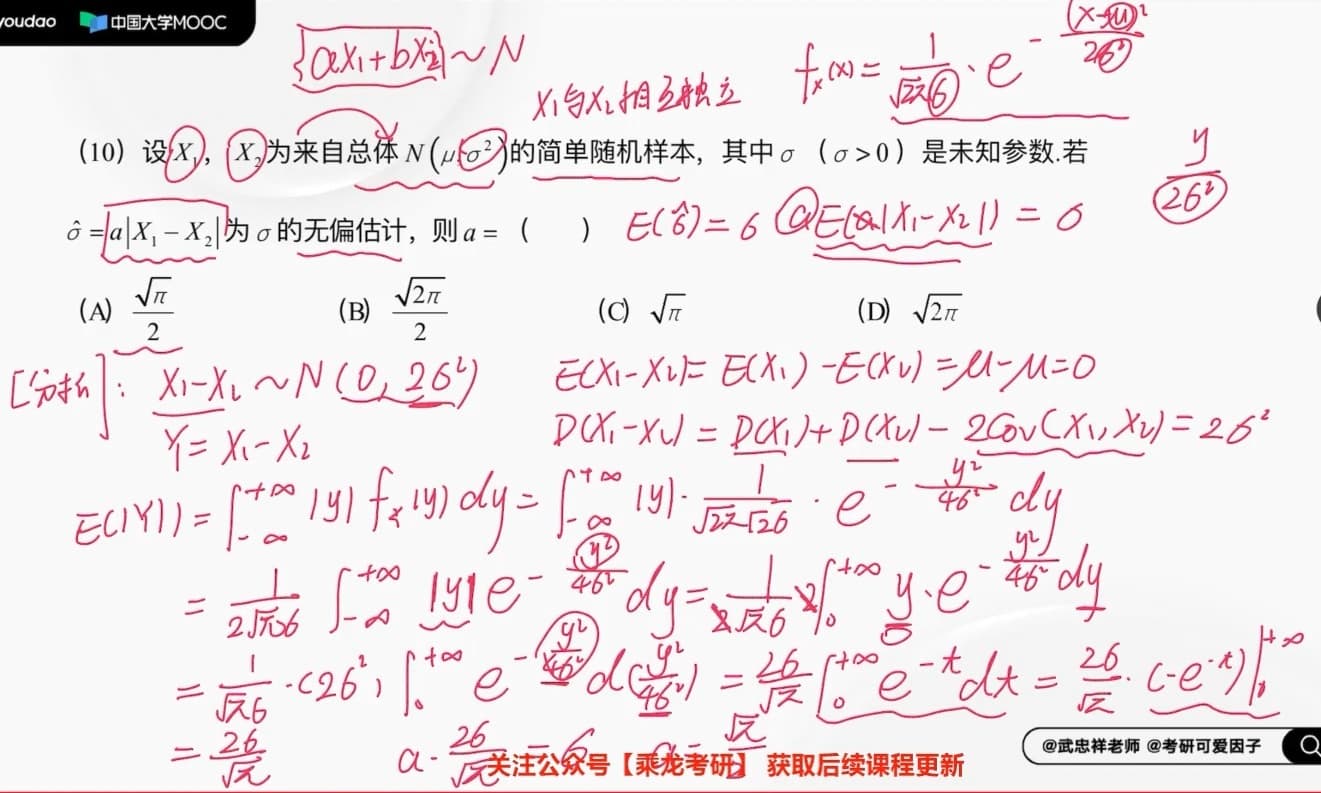 youdao 中国大学MOOC
{aX₁+bX₂}~N
X₁与X₂相互独立
fₓ(x)= 1/(√2π σ) · e^-(x-μ)²/2σ²
(10) 设X₁, X₂为来自总体 N(μ,σ²)的简单随机样本, 其中σ (σ>0) 是未知参数.若
y/2σ²
σ̂ = a|X₁ − X₂|为σ的无偏估计, 则a = ( )
E(σ̂)=σ aE(|X₁-X₂|)=σ
(A) √π/2 (B) √2π/2 (C) √π (D) √2π
[分析]: X₁-X₂~N(0, 2σ²)
E(X₁-X₂)=E(X₁)-E(X₂)=μ-μ=0
Y=X₁-X₂
D(X₁-X₂)=D(X₁)+D(X₂)-2Cov(X₁,X₂)=2σ²
E(|Y|)=∫_{-∞}^{+∞} |y| f(y)dy=∫_{-∞}^{+∞} |y|· 1/(√2π √2σ) · e^{-y²/4σ²} dy
= 1/(2√πσ) ∫_{-∞}^{+∞} |y|e^{-y²/4σ²} dy= 1/(2√πσ) 2∫_0^{+∞} y·e^{-y²/4σ²} dy
= 1/(√πσ) ·(2σ²)∫_0^{+∞} e^{-y²/4σ²} d(y²/4σ²) = 2σ/√π ∫_0^{+∞} e^{-t}dt = 2σ/√π · (-e^{-t})|_0^{+∞}
= 2σ/√π a· 2σ/√π = σ a= √π/2
@武忠祥老师 @考研可爱因子
关注公众号【乘龙考研】 获取后续课程更新